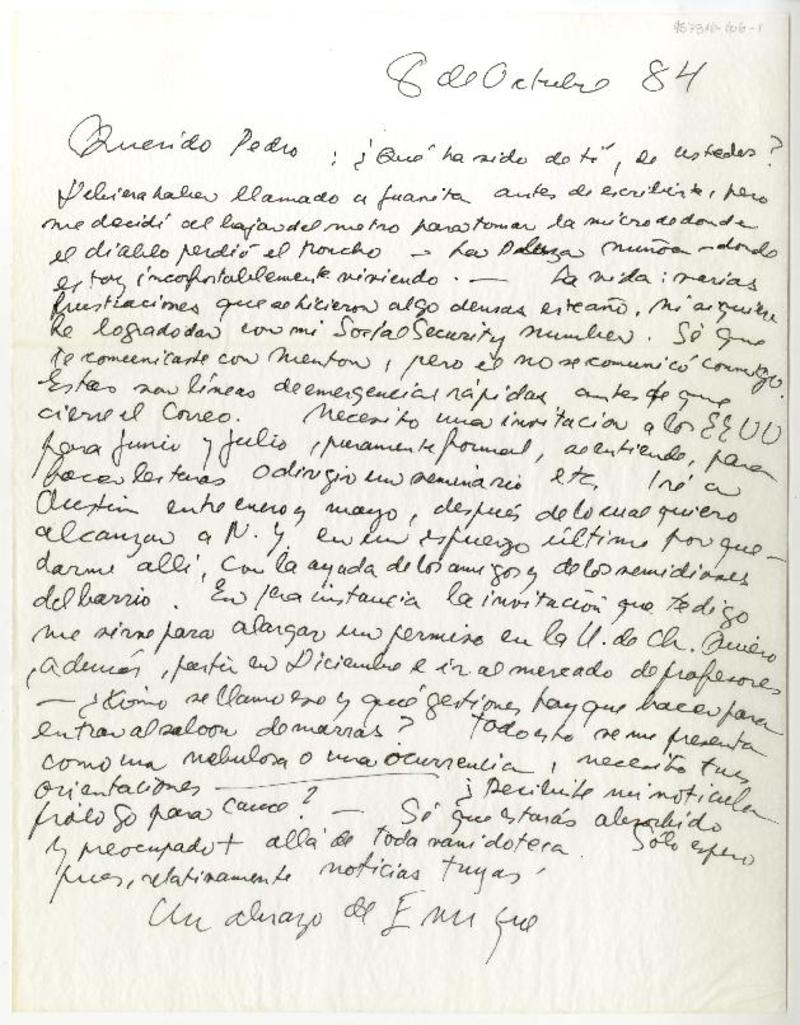 8 de Octubre 84
Querido Pedro : ¿Qué ha sido de tí, de ustedes?
Debiera haber llamado a Juanita antes de escribirte, pero
me decidí al bajar del metro para tomar la micro de donde
el diablo perdió el poncho — La Plaza Ñuñoa — donde
estoy inconfortablemente viviendo. — La vida: varias
frustraciones que se hicieron algo densas este año, ni siquiera
he logrado dar con mi Social Security number. Sé que
te comunicaste con Menton, pero él no se comunicó conmigo.
Estas son líneas de emergencias rápidas antes de que
cierre el Correo. Necesito una invitación a los EEUU
para junio y julio, puramente formal, se entiende, para
hacer lecturas o dirigir un seminario etc. Iré a
Austin entre enero y mayo, después de lo cual quiero
alcanzar a N.Y. en un esfuerzo último por que-
darme allí, con la ayuda de los amigos y de los semidioses
del barrio. En 1era instancia la invitación que te digo
me sirve para alargar un permiso en la U. de Ch. Quiero
, además, partir en Diciembre e ir al mercado de profesores
— ¿Cómo se llama eso y qué gestiones hay que hacer para
entrar al saloon de marras? Todo esto se me presenta
como una nebulosa o una ocurrencia, necesito tus
orientaciones — ¿Recibiste mi noticula
prólogo para Cauce? — Sé que estarás absorbido
y preocupado + allá de toda vanidoteca. Sólo espero
pues, relativamente noticias tuyas.
Un abrazo de Enrique